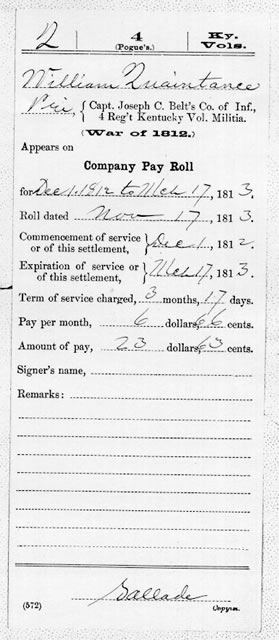 Q | 4 | Ky.
(Pogue's.) Vols.
William Quaintance
Pri, { Capt. Joseph C. Belt's Co. of Inf.,
4 Reg't Kentucky Vol. Militia.
(War of 1812.)
Appears on
Company Pay Roll
for Dec 1. 1812 to Mch 17, 1813.
Roll dated Nov 17, 1813.
Commencement of service
or of this settlement, } Dec 1, 1812.
Expiration of service or
of this settlement, } Mch 17, 1813.
Term of service charged, 3 months, 17 days.
Pay per month, 6 dollars, 66 cents.
Amount of pay, 23 dollars, 63 cents.
Signer's name,
Remarks:
Sallade
(572) Copyist.